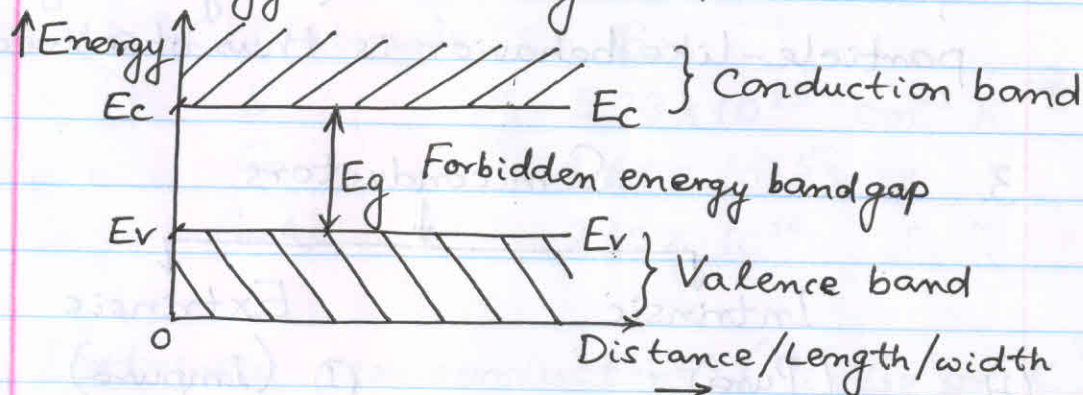 ↑Energy
} Conduction band
Ec
Ec
Eg Forbidden energy bandgap
Ev
Ev
} Valence band
0
Distance/Length/width
→